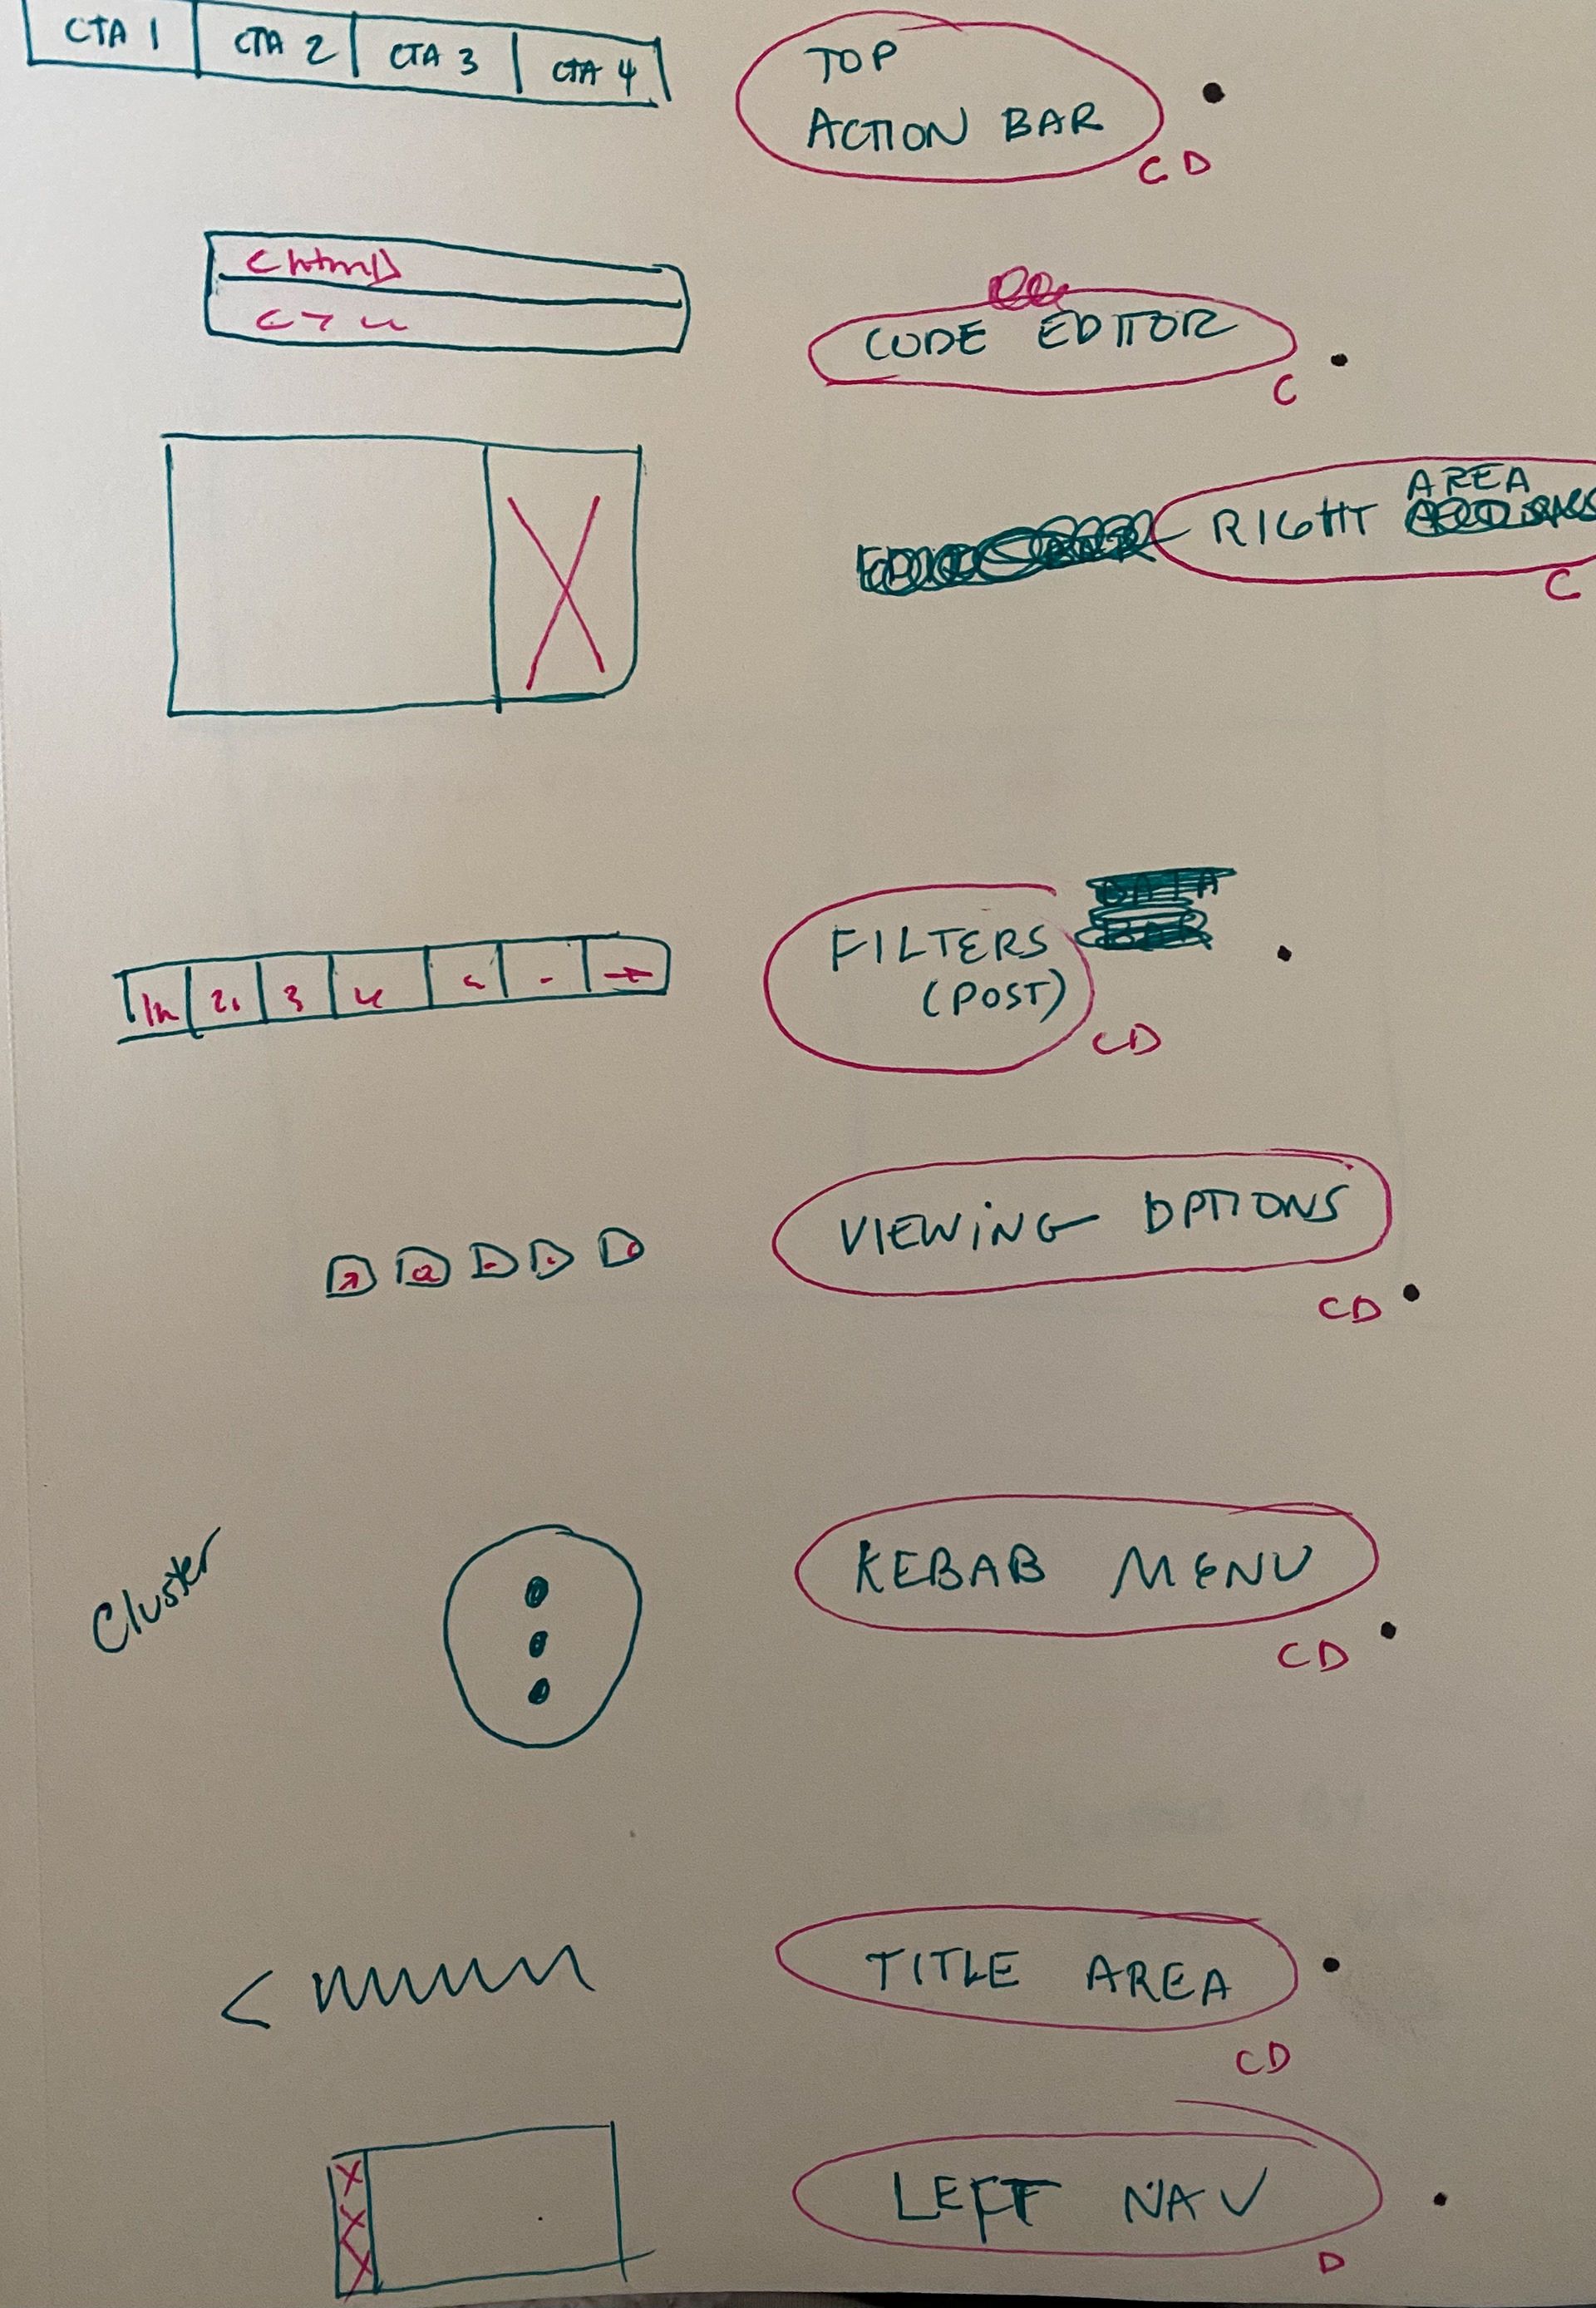 CTA 1 CTA 2 CTA 3 CTA 4
TOP
ACTION BAR
CD
<html>
CODE EDITOR
C
AREA
RIGHT
C
3
FILTERS
(POST)
CD
VIEWING OPTIONS
CD
Cluster
KEBAB MENU
CD
TITLE AREA
CD
X
X
X
LEFT NAV
D